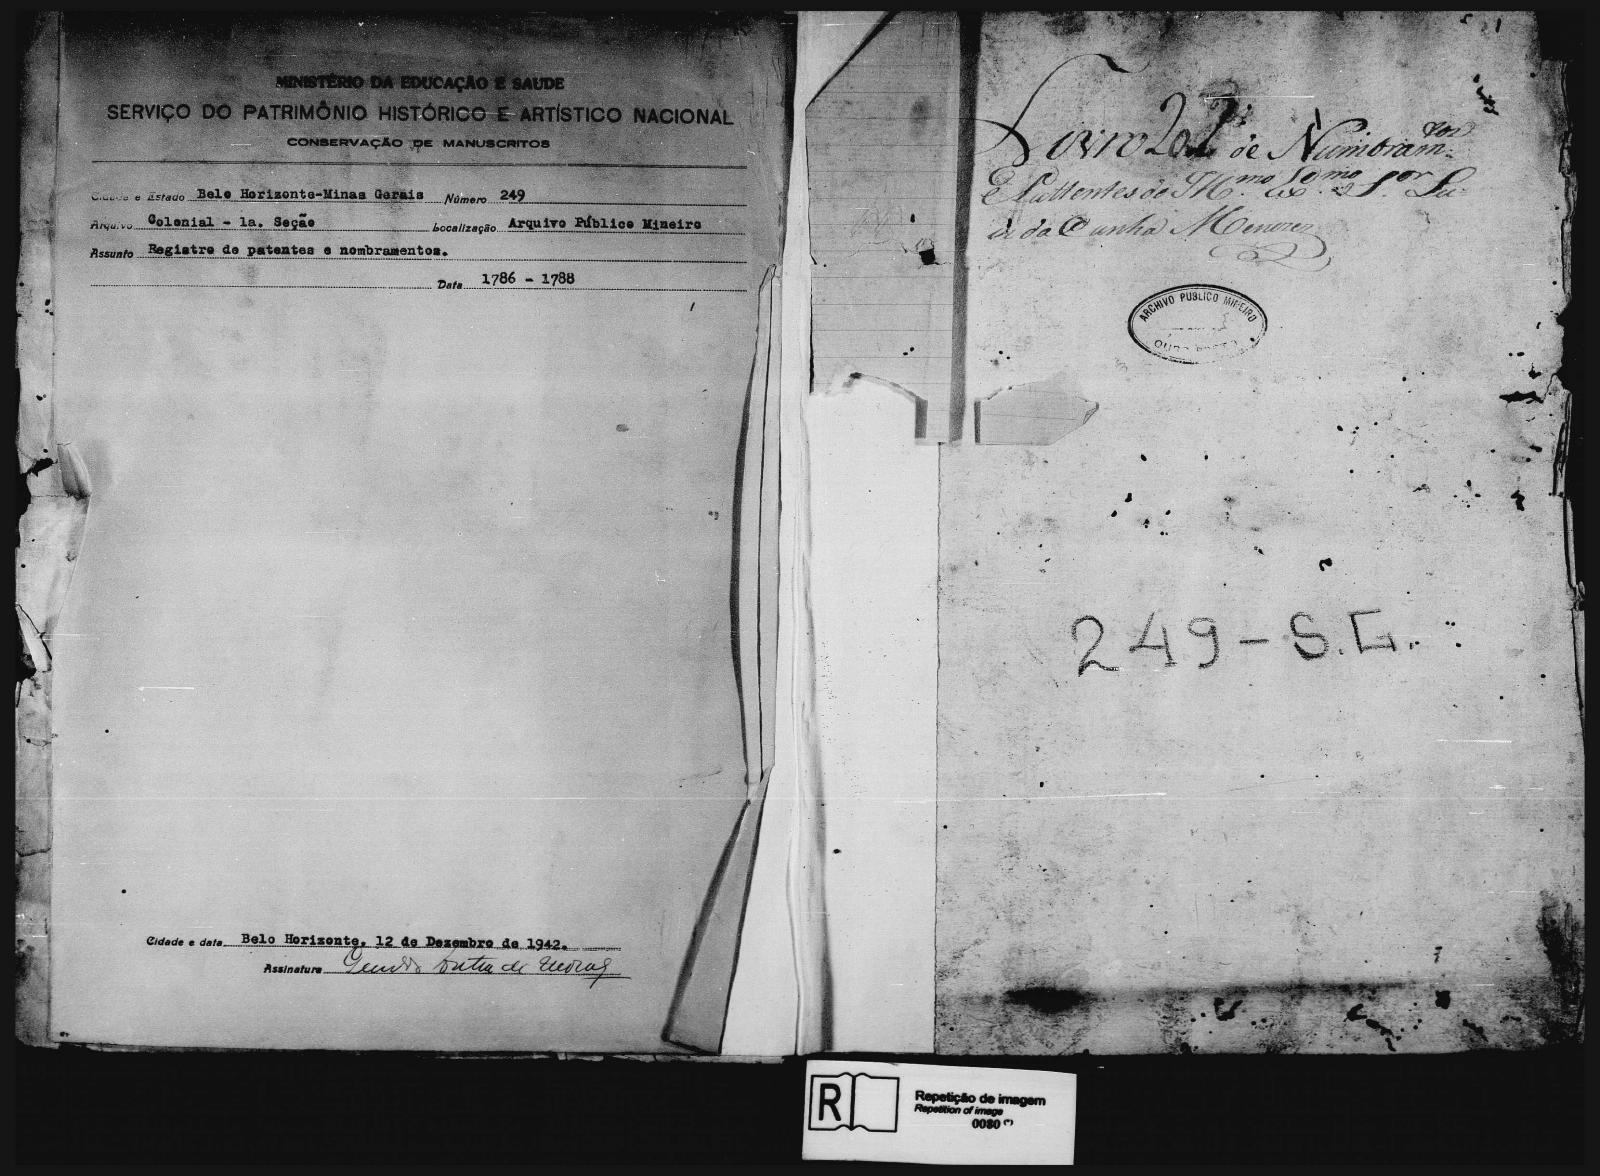 MINISTÉRIO DA EDUCAÇÃO E SAUDE
SERVIÇO DO PATRIMÔNIO HISTÓRICO E ARTÍSTICO NACIONAL
CONSERVAÇÃO DE MANUSCRITOS
Cidade e Estado Belo Horizonte-Minas Gerais Número 249
Arquivo Colonial - 1a. Seção Localização Arquivo Público Mineiro
Assunto Registro de patentes e nombramentos.
Data 1786 - 1788
Cidade e data Belo Horizonte, 12 de Dezembro de 1942.
Assinatura
1
Livro 2º de Numbram.tos
e Pattentes do Ill.mo Ex.mo S.or Lu
is da Cunha Menezes
ARCHIVO PUBLICO MINEIRO
OURO PRETO
249-S.G.
R
Repetição de imagem
Repetition of image
0080 (*)